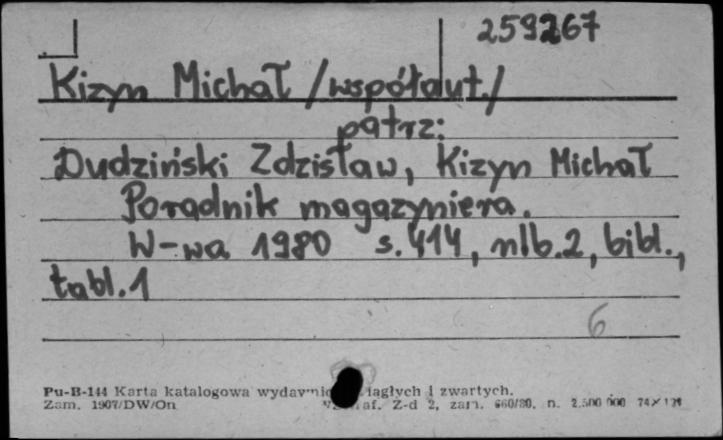 259267
Kizyn Michał /współaut./
patrz:
Dudziński Zdzisław, Kizyn Michał
Poradnik magazyniera.
W-wa 1980 s. 414, nlb. 2, bibl.,
tabl. 1
6
Pu-B-144 Karta katalogowa ciągłych i zwartych.
Zam. 1907/DW/On Z-d 2, zam. 660/80. n. 2.500 000 74×121